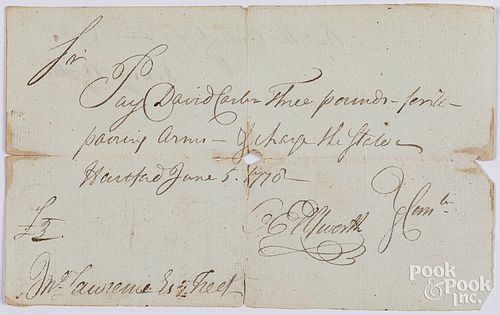 Sir
Pay David Carter Three pounds for re-
pairing Arms – & charge the State –
Hartford June 5. 1778 –
£3
O Ellsworth } Comtee
Jno Lawrence Esqr Treasr
POOK & POOK Inc.